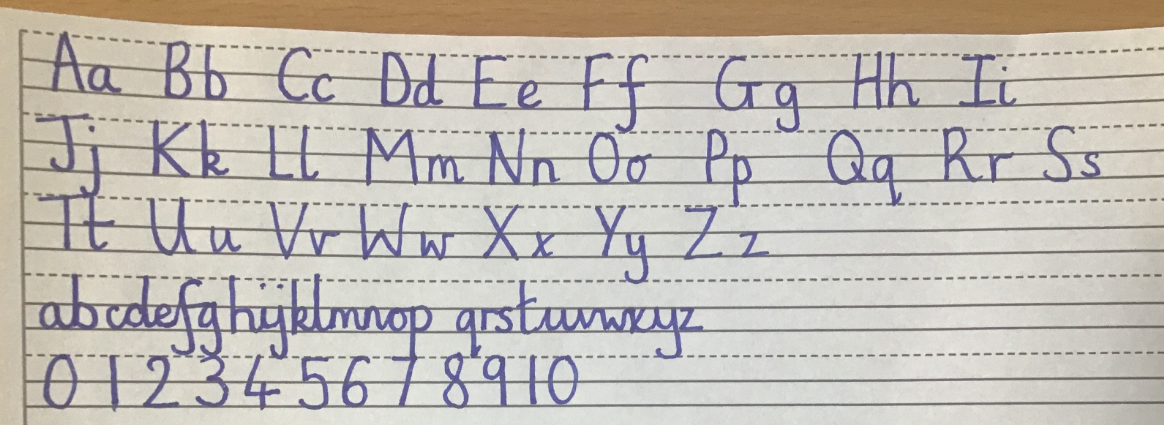 Aa Bb Cc Dd Ee Ff Gg Hh Ii
Jj Kk Ll Mm Nn Oo Pp Qq Rr Ss
Tt Uu Vv Ww Xx Yy Zz
abcdefghijklmnop qrstuvwxyz
0 1 2 3 4 5 6 7 8 9 10